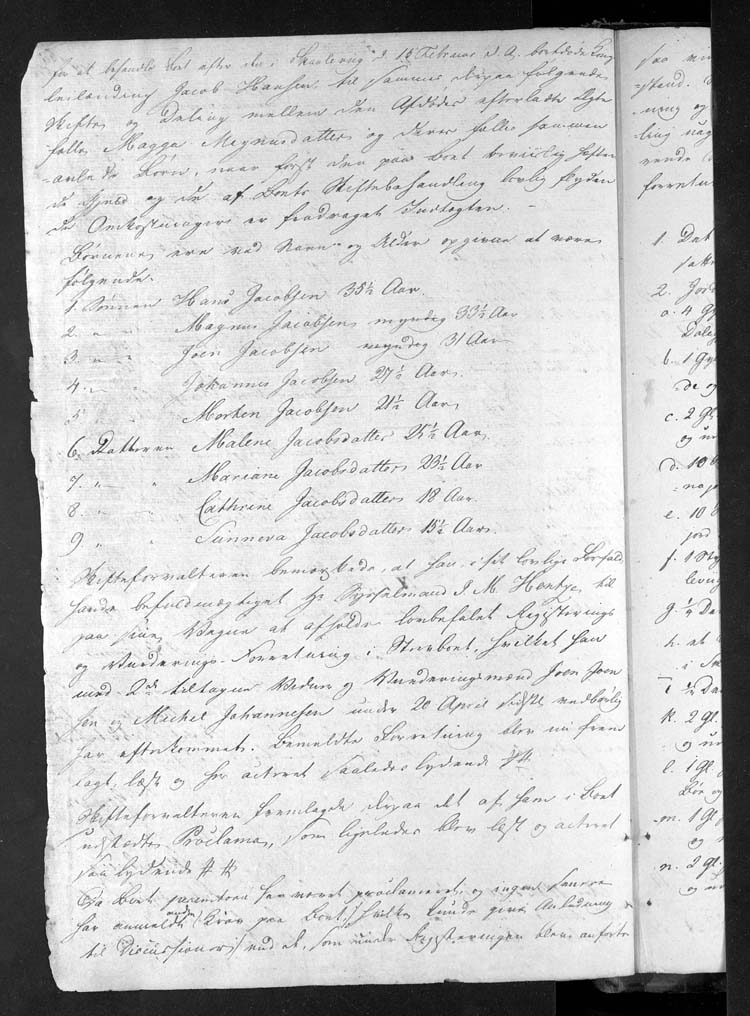 for at behandle Boet efter den i Skaalevig d 15 Februar d. A. bortdøde Kongs
Jacob Hansen til sammes derpaa følgende
Skifte og Deling mellem den Afdødes efterladte Ægte
fælle Magga Magnusdatter og deres fælles sammen
avlede Børn, naar først den paa Boet beviislig heften
de Gjeld og de af Boets Skiftebehandling lovlig flyden
de Omkostninger er fradraget Indtægten. -
Børnene ere ved Navn og Alder opgivne at være
følgende.
1. Sönnen Hans Jacobsen 35½ Aar
2. " " Magnus Jacobsen myndig 33½ Aar
3. " " Joen Jacobsen myndig 31 Aar
4. " " Johannes Jacobsen 27½ Aar.
5 " " Morten Jacobsen 21½ Aar
6. Datteren Malene Jacobsdatter 25½ Aar
7. " " Mariane Jacobsdatter 23½ Aar
8. " " Cathrine Jacobsdatter 18 Aar.
9 " " Sunneva Jacobsdatter 15½ Aar.
Skifteforvalteren bemærkede, at han, i sit lovlige Forfald,
havde befuldmægtiget Hr Sysselmand J. M. Hentze til
paa sine Vegne at afholde lovbefalet Registerings
og Vurderings-Forretning i Stervboet, hvilket han
med 2de tiltagne Vidner og Vurderingsmænd Joen Joen
sen og Michel Johannesen under 20 April sidstl. vedbørlig
har efterkommet. Bemeldte Forretning blev nu frem
lagt, læst og her acteret saaledes lydende ##
Skifteforvalteren fremlagde derpaa det af ham i Boet
udstædte Proclama, som ligeledes blev læst og acteret
saa lydende ##
Da Boet har været proclameret og ingen
har anmeldt Krav paa Boet, hvilke kunde give Anledning
til Discussioner, end de, som under Registeringen bleve anførte
saa
stend.
ning og
ling
rende
forretni
1. Det
2. Jor
a. 4 Gy
b. 1 Gyl
de og
c. 2 Gl.
og
d. 10
e. 10
jord
f. 1 Sty
g. ½ Da
h. et
i
i ½ Da
k. 2 gl.
l. 1 gl.
m. 1 Gl
og
n. 2 gl.